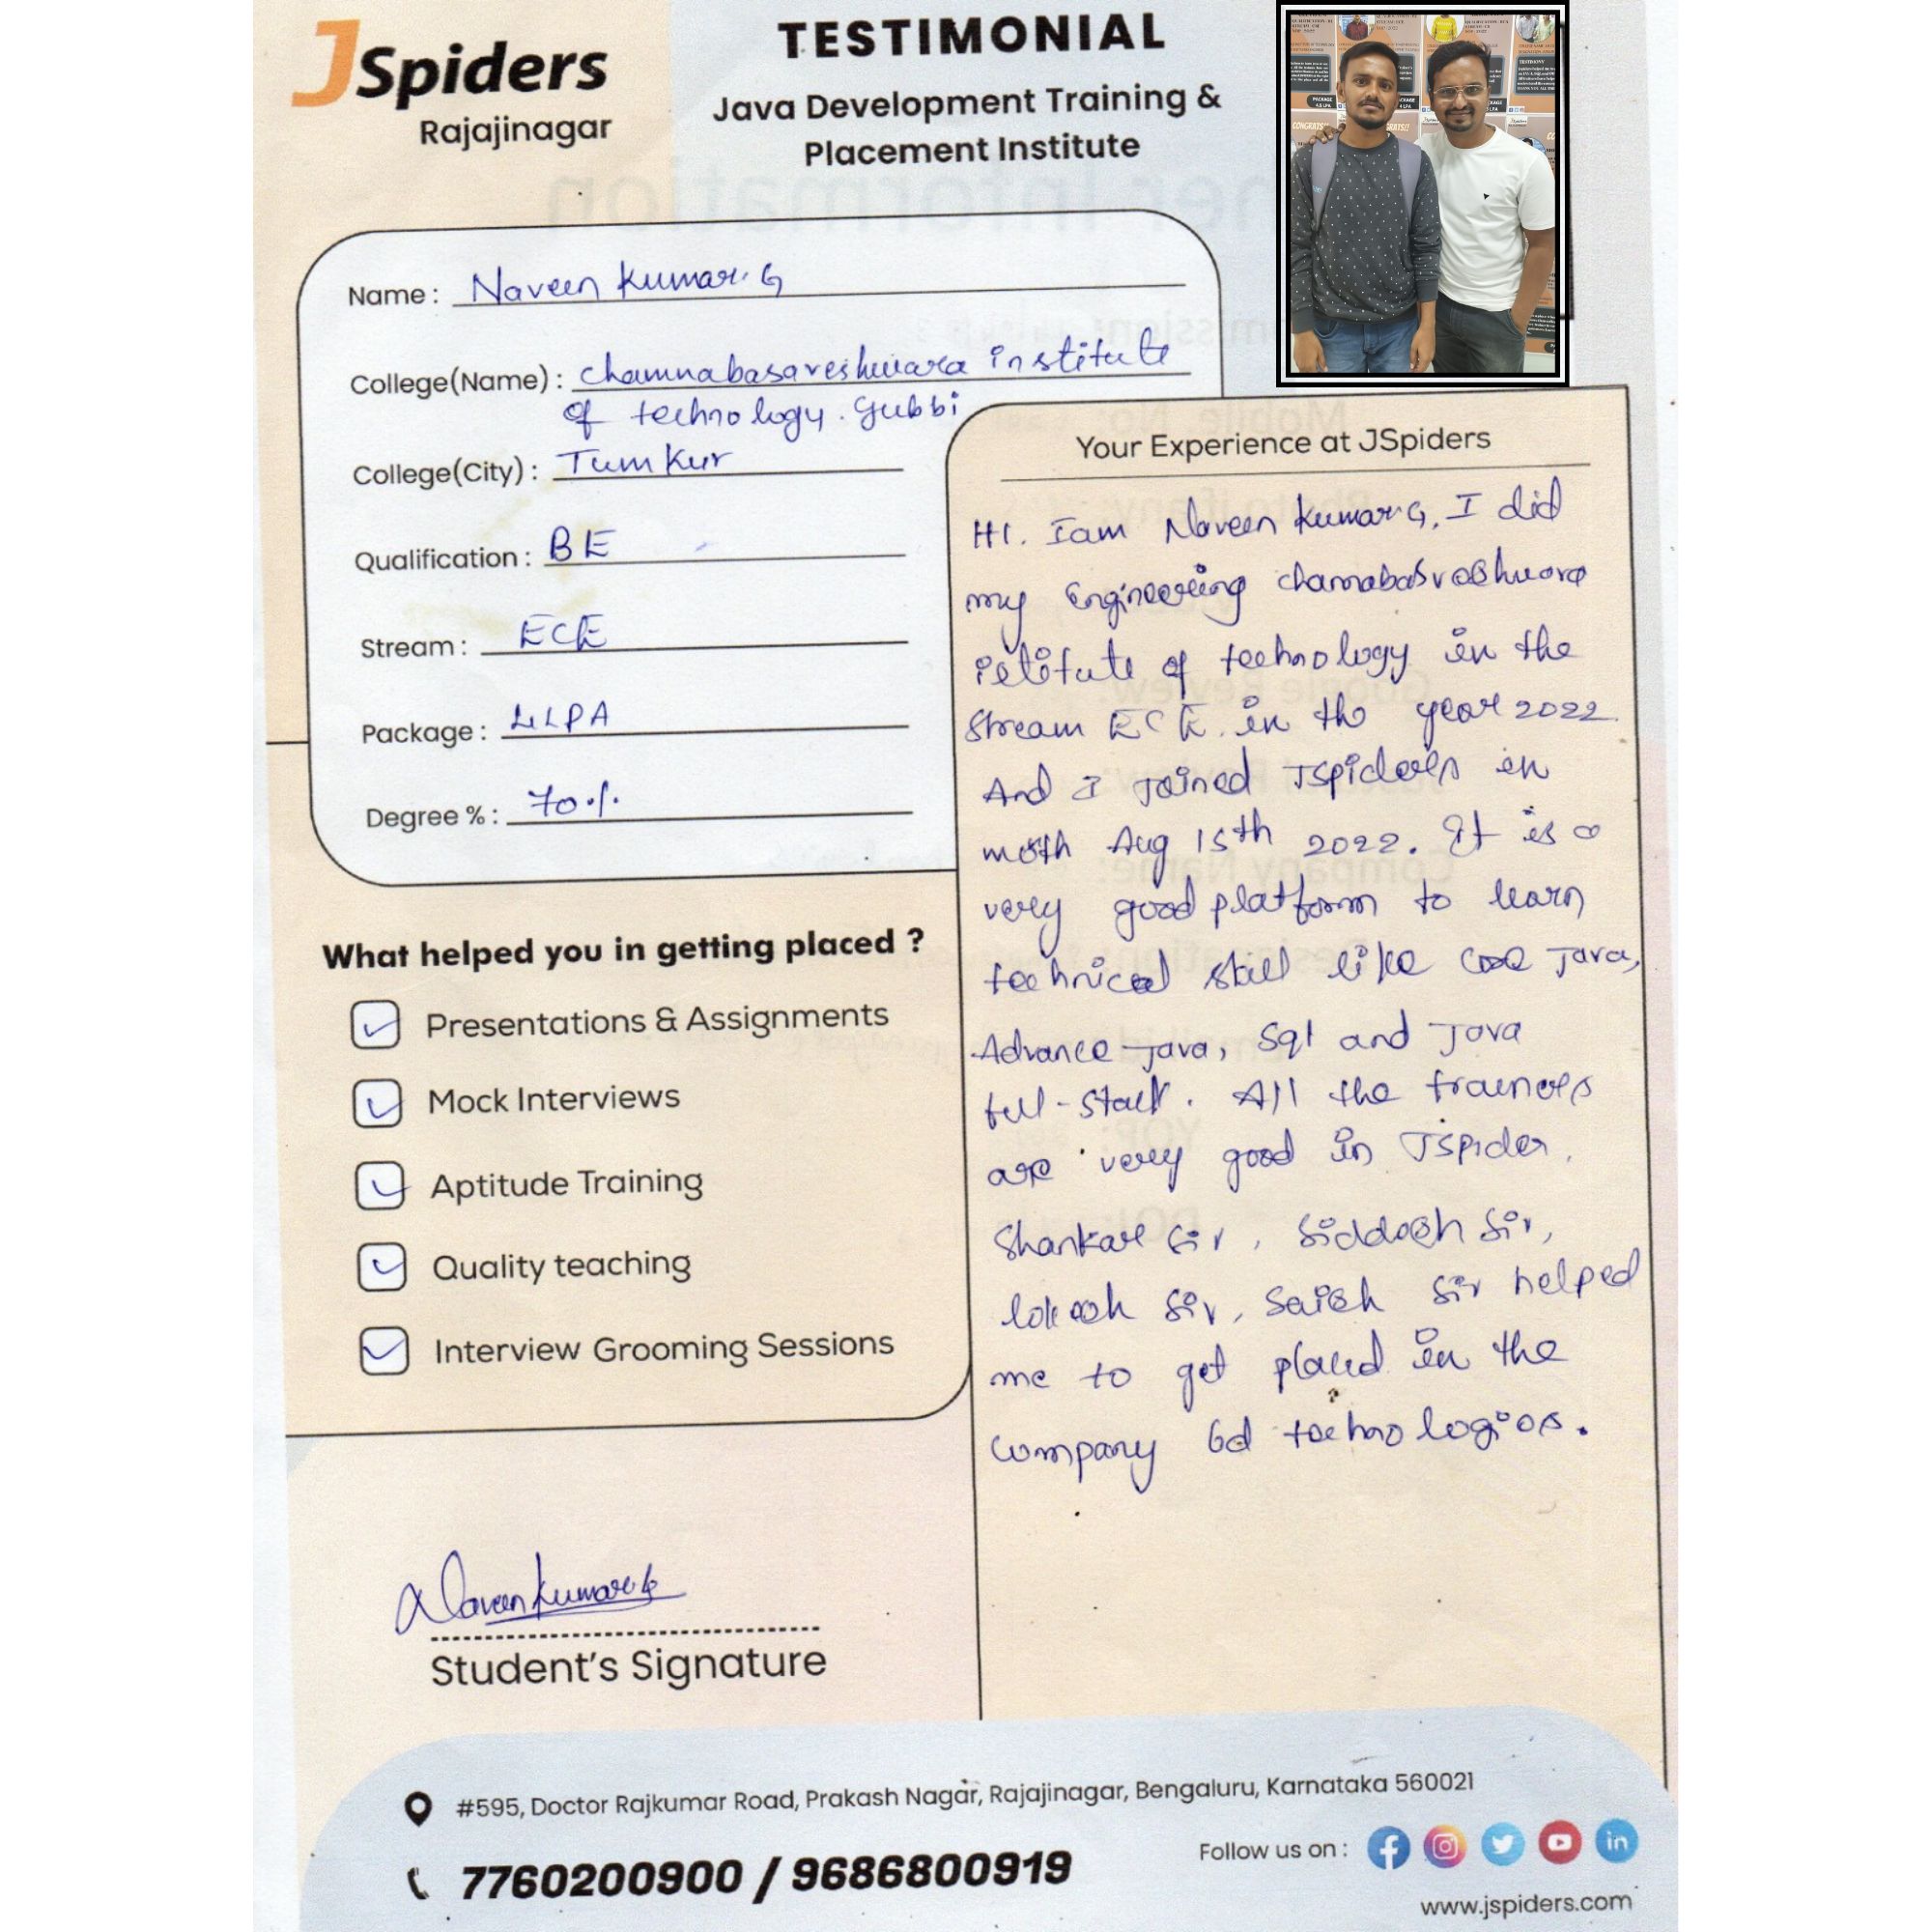 JSpiders
Rajajinagar
TESTIMONIAL
Java Development Training &
Placement Institute
Name : Naveen Kumar. G
College(Name) : Channabasaveshwara institute
of technology. Gubbi
College(City) : Tumkur
Qualification : BE
Stream : ECE
Package : 4LPA
Degree % : 70%
What helped you in getting placed ?
Presentations & Assignments
Mock Interviews
Aptitude Training
Quality teaching
Interview Grooming Sessions
Naveen Kumar G
Student's Signature
Your Experience at JSpiders
HI. Iam Naveen Kumar G, I did
my Engineering
of technology in the
Stream ECE. in the year 2022
And I Joined Jspiders in
Aug 15th 2022. It is a
very good platform to learn
technical skill like Java,
Advance Java, Sql and Java
full-stack. All the trainers
are very good in Jspider.
Shankar Sir, Siddesh Sir,
lokesh Sir, Sir helped
me to get placed in the
company technologies.
#595, Doctor Rajkumar Road, Prakash Nagar, Rajajinagar, Bengaluru, Karnataka 560021
7760200900 / 9686800919
Follow us on :
www.jspiders.com